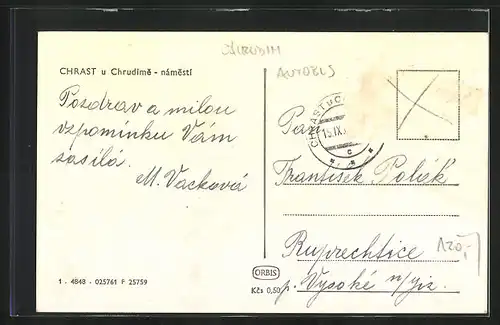 CHRUDIM
AUTOBUS
CHRAST u Chrudimě - náměstí
Pozdrav a milou
vzpomínku Vám
zasílá.
M. Vacková
CHRAST U C
15.IX.
Pan
František Polák
Ruprechtice
p. Vysoké n/Jiz.
120,-
ORBIS
Kčs 0,50
1 - 4848 - 025761 F 25759